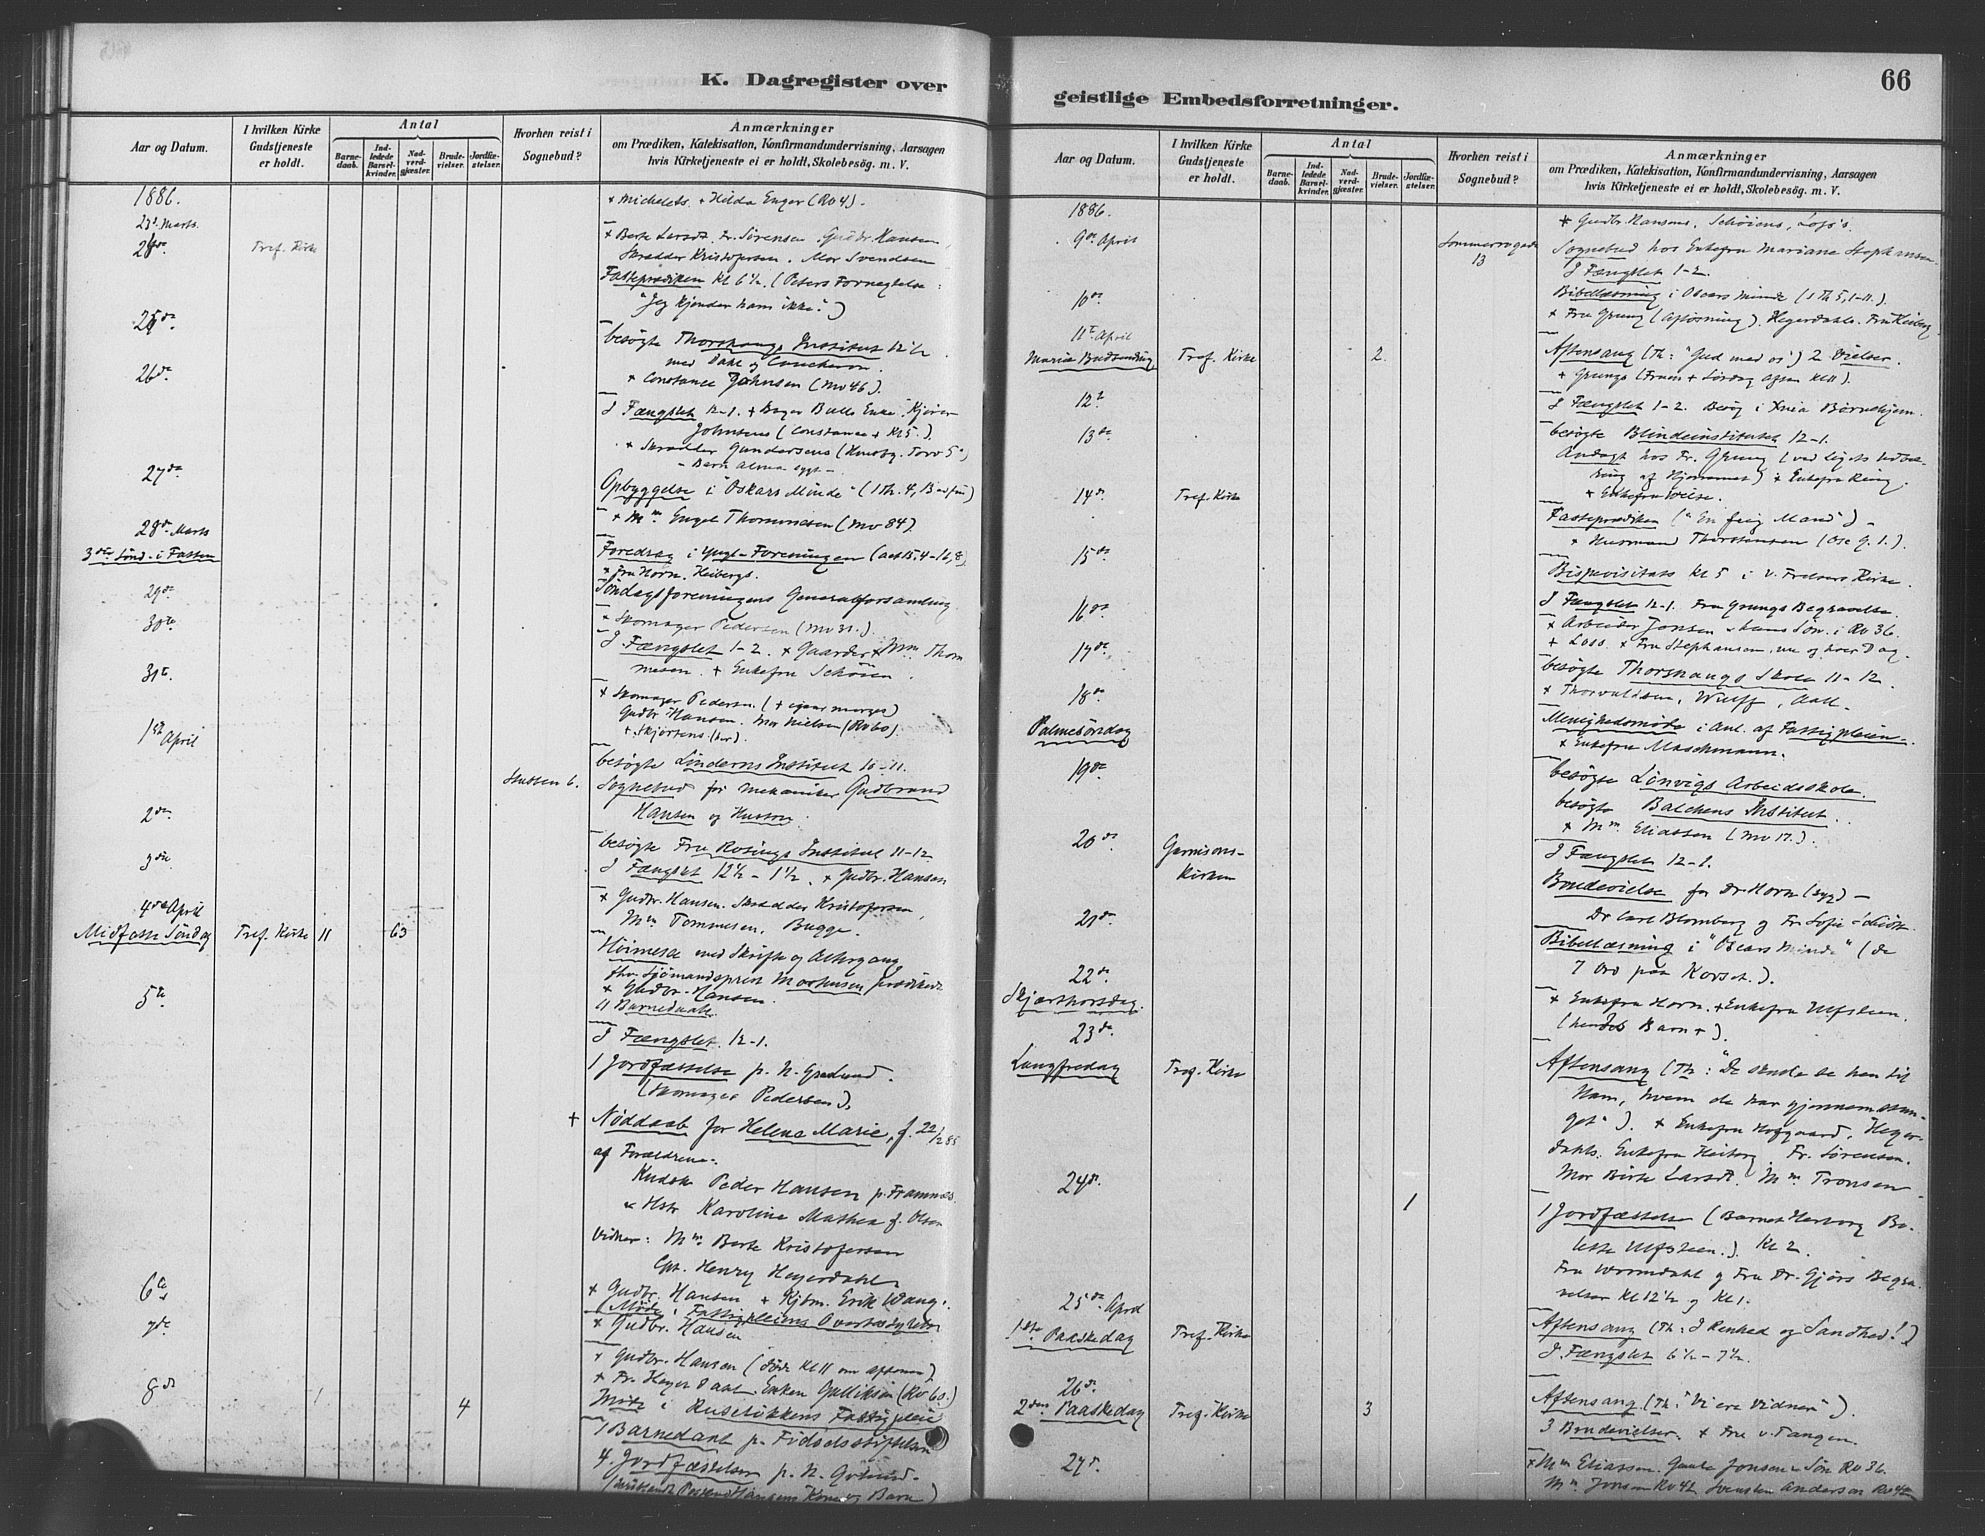 K. Dagregister over
Aar og Datum.
I hvilken Kirke Gudstjeneste er holdt.
Antal
Barnedaab.
Indledede Barselkvinder.
Nadverdgjæster.
Brudevielser.
Jordfæstelser.
Hvorhen reist i Sognebud?
Anmærkninger
om Prædiken, Katekisation, Konfirmandundervisning, Aarsagen
hvis Kirketjeneste ei er holdt, Skolebesög. m. V.
1886.
+ Michelets + Hilda Enger (Rv 4).
23de Marts.
24de Tref. Kirke
+ Berte Larsdt. Fr. Sörensen Gudbr. Hansen,
Skrædder Kristofersen. Mor Svendsen
Fasteprædiken Kl 6½ (Peters Fornegtelse:
"Jeg kjender ham ikke".)
25de
besögte Thorshaugs Institut 12½
med Dahl og
+ Constance Johnsen (Mv 46).
26de
I Fængslet 12-1. +
Johnsens (Constance + Kl 5.).
+ Skrædder Gundersens
- Barn Alma sygt -
27de
Opbyggelse i "Oskars Minde" (1 Th. 4,
+ Mm Engel Thommesen (Mv 84)
28de Marts
3die Sönd. i Fasten
Foredrag i Yngl. Foreningen (Act 15,4-16,8)
+ Fru Horn. Heibergs.
29de
Söndagsforeningens Generalforsamling
+ Skomager Pedersen (Mv 31.)
30te
I Fængslet 1-2. + Gaarder + Mm Thommesen. + Enkefru Schöien.
31te
+ Skomager Pedersen. (+ igaar morges)
Gudbr. Hansen. Mor Nielsen (Rv 60).
+ Skjortens (her).
1ste April
besögte Linderns Institut 10-11.
Stutten 6.
Sognebud for Mekaniker Gudbrand
Hansen og Hustru.
2den
besögte Fru Rosings Institut 11-12
I Fængslet 12½ - 1½. + Gudbr. Hansen
3die
+ Gudbr. Hansen. Skrædder Kristofersen,
Mm Tommesen, Bugge.
4de April
Midfaste Söndag Tref. Kirke 11 63
Höimesse med Skrifte og Altergang
Sjömandsprest Mortensen prædikede
+ Gudbr. Hansen.
11 Barnedaab.
5te
I Fængslet. 12-1.
1 Jordfæstelse p. N. Gravlund.
(Skomager Pedersen).
+ Nöddaab for Helena Marie, f. 22/2 85
af Forældrene:
Kudsk Peder Hansen p. Framnæs
& Hstr Karoline Mathea f. Olsen
Vidner: Mm. Berte Kristofersen
Cpt. Henry Heyerdahl.
6te
+ Gudbr. Hansen + Kjbm. Erik Wang.
Möde i Fattigpleiens
7de
+ Gudbr. Hansen
+ Gudbr. Hansen (döde Kl 11 om aftenen)
+ Fr. Heyerdahl. Enken Gulliksen (Rv 60.)
8de 1 4
Möde i Ruselökkens Fattigpleie
1 Barnedaab p. Födselsstiftelsen
4. Jordfæstelser p. N. Gravlund.
geistlige Embedsforretninger.
66
Aar og Datum.
I hvilken Kirke Gudstjeneste er holdt.
Antal
Barnedaab.
Indledede Barselkvinder.
Nadverdgjæster.
Brudevielser.
Jordfæstelser.
Hvorhen reist i Sognebud?
Anmærkninger
om Prædiken, Katekisation, Konfirmandundervisning, Aarsagen
hvis Kirketjeneste ei er holdt, Skolebesög. m. V.
1886.
+ Gudbr. Hansens, Schöiens,
9de April Sommerrogade 13
Sognebud hos Enkefru Mariane Stephansen.
I Fængslet 1-2.
10de
Bibellæsning i Oscars Minde (1 Th 5,1-11.).
+ Fru Grung (Aflösning). Heyerdahls. Fru Heiberg
11te April
Mariæ Budskabsdag Tref. Kirke 2
Aftensang (Th: "Gud med os") 2 Vielser.
+ Grungs (Fruen + Lördag Aften Kl 11).
12te
I Fængslet 1-2. Besög i Xnia Börnehjem.
13de
besögte Blindeinstitutet 12-1.
Andagt hos Fr. Grung (ved Ligets Udbæring af Hjemmet) + Enkefru Ring.
+ Enkefru Veilse.
14de Tref. Kirke
Fasteprædiken ("En feig Mand") -
+ Husmand Thorstensen (Ose G. 1.).
15de
Bispevisitats Kl 5 i V. Frelsers Kirke.
16de
I Fængslet 12-1. Fru Grungs Begravelse.
+ Arbeider Jonsen & hans Sön. i Rv 36.
+ Loss. + Fru Stephansen, nu og hver Dag.
17de
besögte Thorshaugs Skole 11-12.
+ Thorvaldsen, Wulff, Aall -
18de
Palmesöndag
Menighedsmöde i Anl. af Fattigpleien.
+ Enkefru Maschmann.
19de
besögte Lönvigs Arbeidsskole.
besögte Balchens Institut.
+ Mm. Eliassen (Mv 17.).
20de Garnisons-Kirken
I Fængslet 12-1.
Brudevielse for Dr. Horn (syg) -
Dr Carl Blomberg og Fr. Sofie
21de
Bibellæsning i "Oscars Minde" (de
7 Ord paa Korset.).
22de
Skjærthorsdag
+ Enkefru Horn. + Enkefru Ulfsteen.
(hendes Barn +).
23de
Langfredag Tref. Kirke
Aftensang (Th: "De skulle se hen til
Ham, hvem de har gjennemstunget"). + Enkefru Hofgaard, Heyerdahls. Enkefru Heiberg. Fr. Sörensen.
Mor Birte Larsdt. Mm Tronsen
24de 1
1 Jordfæstelse (Barnet Herborg Bolette Ulfsteen.). Kl 2.
Fru Wormdahl og Fru Dr. Gjörs Begravelser Kl 12½ og Kl 1.
25de April
1ste Paaskedag Tref. Kirke
Aftensang (Th: I Renhed og Sandhed!)
I Fængslet 6½ - 7½.
26de
2den Paaskedag Tref. Kirke 3
Aftensang (Th: "Vi ere Vidner").
3 Brudevielser. + Fru v. Tangen.
27de
+ Mm Eliassen. Gamle Jonsen & Sön Rv 36.
Mm Jonsen Rv 42 Svensken Anderson Rv 42